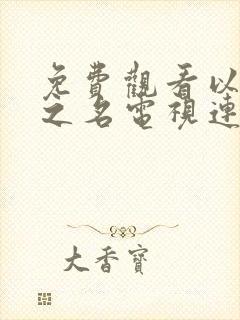 免費觀看以
之名電視連
大香寶